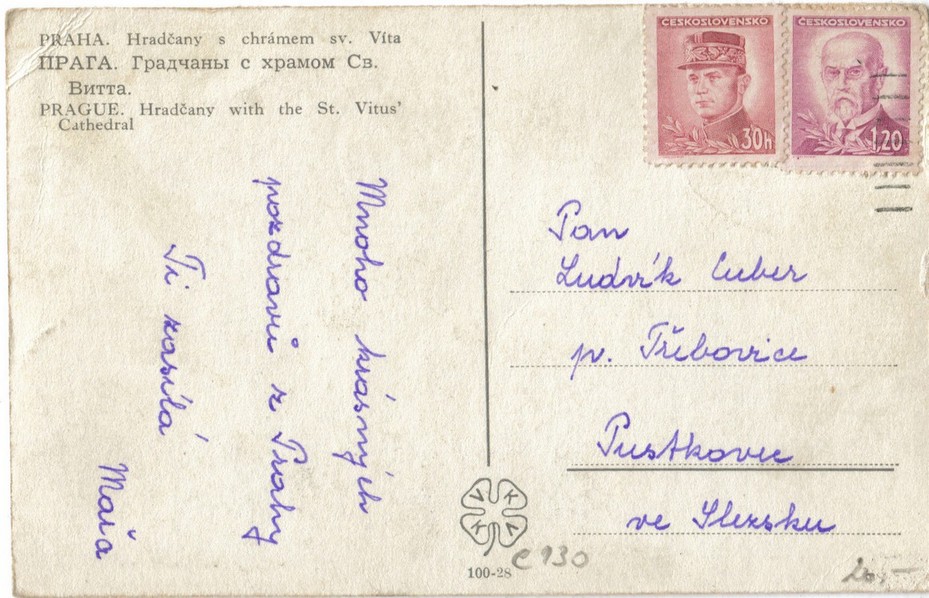 PRAHA. Hradčany s chrámem sv. Víta
ПРАГА. Градчаны с храмом Св.
Витта.
PRAGUE. Hradčany with the St. Vitus'
Cathedral
Mnoho krásných
pozdravů z Prahy
Ti zasílá
Máňa
ČESKOSLOVENSKO
30h
ČESKOSLOVENSKO
1,20
Pan
Ludvík Cuber
p. Třebovice
Pustkovec
ve Slezsku
V K
V K
100-28
C 130